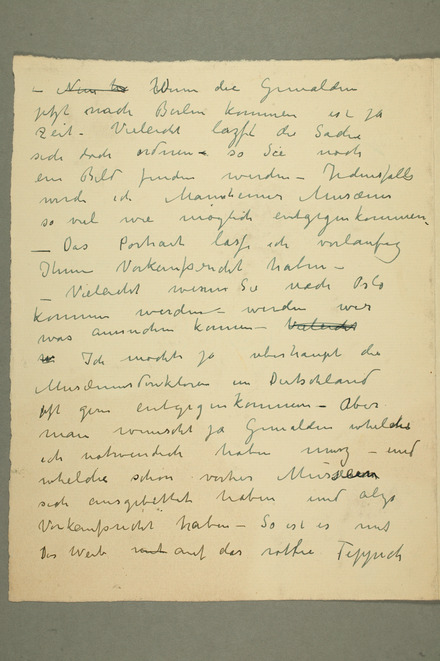 – Nun Wenn die Gemalden
jetzt nach Berlin kommen ist ja
Zeit – Vieleicht lazst die Sache
sich doch ordnen – so Sie noch
ein Bild finden werden – Jedensfalls
werde ich Manheimer Museum
so viel wie moglich entgegenkommen.
– Das Portrait lasse ich vorlaufig
Ihnen Vorkaufsrecht haben –
– Vieleicht wenn Sie nach Oslo
kommen werden – werden wir
was ausrichen konnen – Valeicht
Ich mochte ja uberhaupt die
Museumsdirektoren in Deutschland
oft gern entgegenkommen – Aber
man wunscht ja Gemalden whelche
ich notwendich haben musz – und
whelche schon vorher Museum
sich ausgebettet haben und also
Vorkaufsrecht haben – So ist es mit
Das Weib auf das rothe Teppich